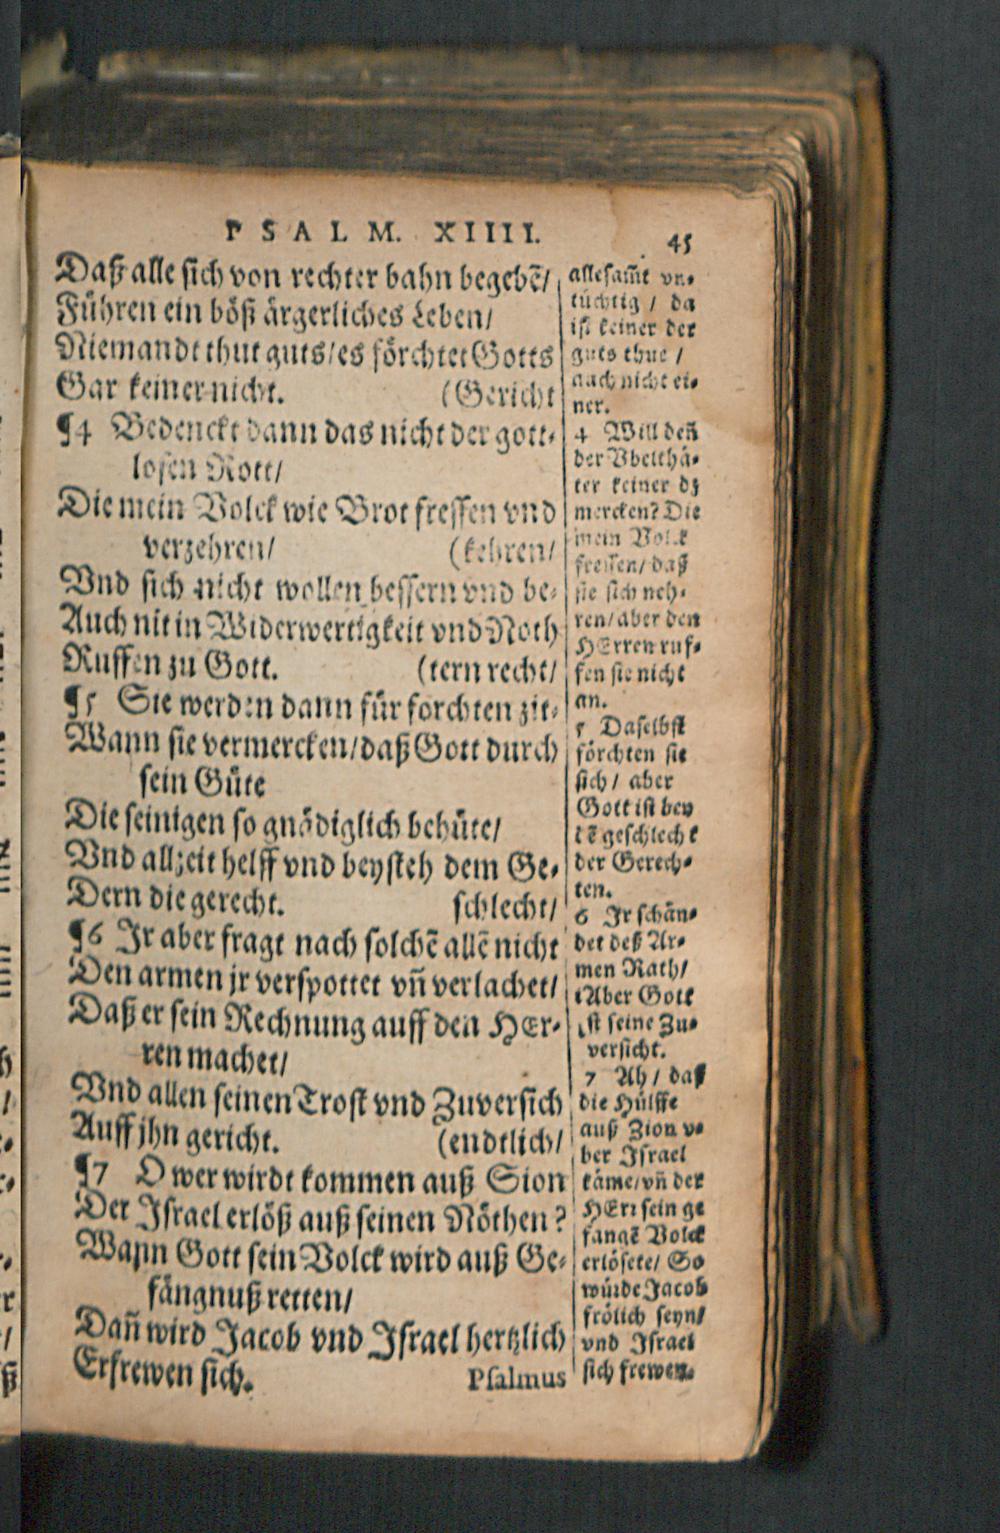 PSALM. XIIII.
45
Daß alle sich von rechter bahn begebē/
Führen ein böß ärgerliches Leben/
Niemandt thut guts/es förchtet Gotts
Gar keiner nicht. (Gericht
¶4 Bedenckt dann das nicht der gott-
losen Rott/
Die mein Volck wie Brot fressen vnd
verzehren/ (kehren/
Vnd sich nicht wollen bessern vnd be-
Auch nit in Widerwertigkeit vnd Noth
Ruffen zu Gott. (tern recht/
¶5 Sie werden dann für forchten zit-
Wann sie vermercken/daß Gott durch
sein Güte
Die seinigen so gnädiglich behüte/
Vnd allzeit helff vnd beysteh dem Ge-
Dern die gerecht. schlecht/
¶6 Jr aber fragt nach solchē allē nicht
Den armen jr verspottet vñ verlachet/
Daß er sein Rechnung auff den HEr-
ren machet/
Vnd allen seinen Trost vnd Zuversich
Auff jhn gericht. (endtlich/
¶7 O wer wirdt kommen auß Sion
Der Israel erlöß auß seinen Nöthen?
Wann Gott sein Volck wird auß Ge-
fängnuß retten/
Dañ wird Jacob vnd Israel hertzlich
Erfrewen sich.
Psalmus
allesam̃t vn-
tüchtig / da
ist keiner der
guts thue /
auch nicht ei-
ner.
4 Will deñ
der Vbelthä-
ter keiner dz
mercken? Die
mein Volck
fressen/ daß
sie sich neh-
ren/aber den
HErren ruf-
fen sie nicht
an.
5 Daselbst
förchten sie
sich/ aber
Gott ist bey
dē geschlecht
der Gerech-
ten.
6 Jr schän-
det deß Ar-
men Rath/
Aber Gott
ist seine Zu-
versicht.
7 Ah/ daß
die Hülffe
auß Zion v-
ber Israel
käme/vñ der
HErr sein ge
fangē Volck
erlösete/ So
würde Jacob
frölich seyn/
vnd Israel
sich frewen.